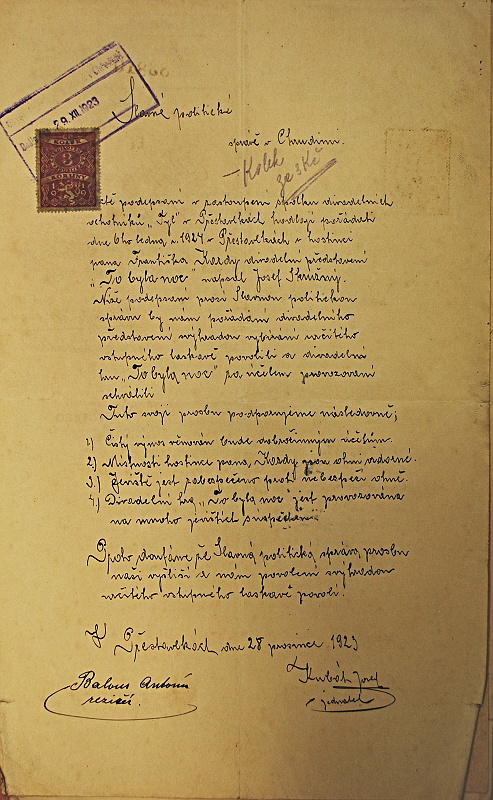 29.XII.1923
Slavné politické
správě v Chrudimi.
Kolek
za 3 Kč
KOLEK
3
KORUNY
1919
Níže podepsaní v zastoupení spolku divadelních
ochotníků „Tyl" v Přestavlkách hodlají pořádati
dne 6ho ledna, r. 1924 v Přestavlkách v hostinci
pana Františka Kozdy divadelní představení
„To byla noc" napsal Josef Skružný.
Níže podepsaní prosí Slavnou politickou
správu by nám pořádání divadelního
představení s výhradou vybírání určitého
vstupného laskavě povolili a divadelní
hru „To byla noc" za účelem provozování
schválili
Tuto svoji prosbu podporujeme následovně;
1) Čistý výnos věnován bude dobročinným účelům.
2) Místnosti hostince pana, Kozdy jsou ohni vzdorné.
3.) Jeviště jest zabezpečeno proti nebezpečí ohně.
4.) Divadelní hra „To byla noc" jest provozována
na mnoha jevištích s úspěchem
Pročo doufáme že Slavná politická správa, prosbu
naší vyslyší a nám povolení s výhradou
určitého vstupného laskavě povolí.
V Přestavlkách dne 28 prosince 1923
Balous Antonín
režisér.
Kubát Josef
jednatel